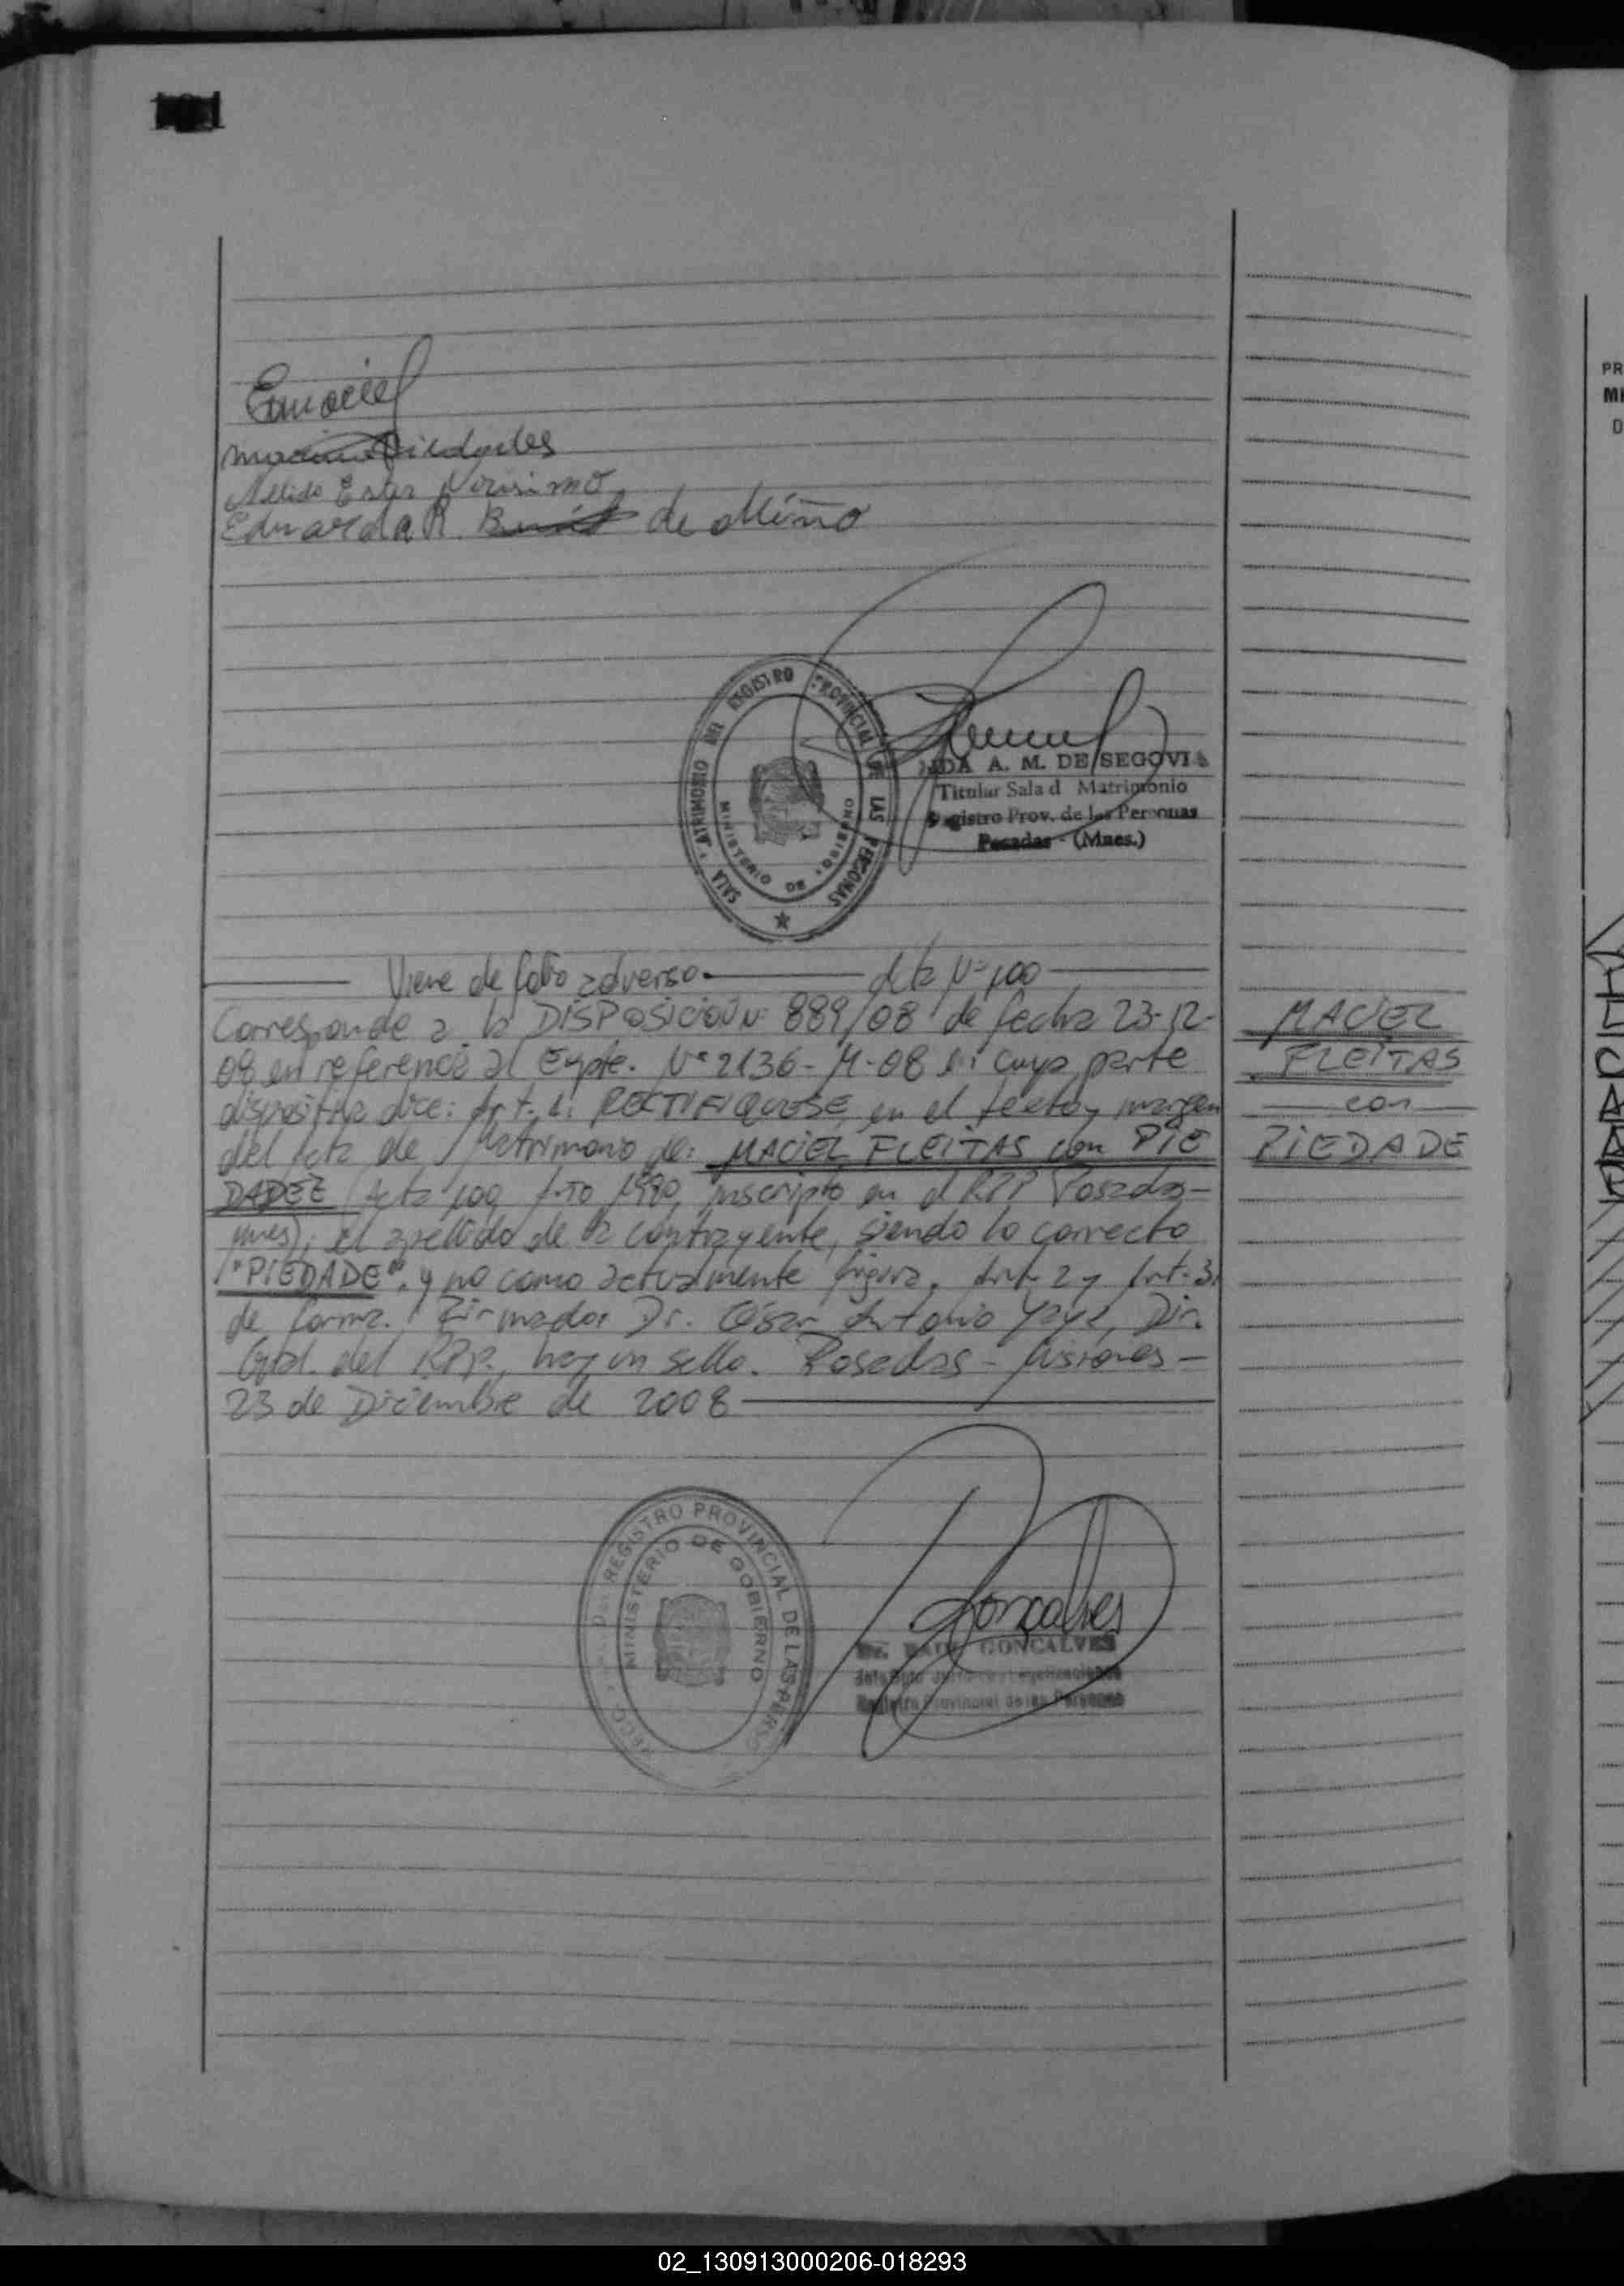 Emaciel
Eduarda R. de Miño
SALA MATRIMONIO DEL REGISTRO PROVINCIAL DE LAS PERSONAS
MINISTERIO DE GOBIERNO
A. M. DE SEGOVIA
Titular Sala d Matrimonio
Registro Prov. de las Personas
Posadas - (Mnes.)
Viene de folio adverso. Acta Nº 100
Corresponde a la DISPOSICIÓN Nº 889/08 de fecha 23-12-
08 en referencia al Expte. Nº 2136-M-08 en cuya parte
dispositiva dice: Art. 1: RECTIFIQUESE, en el texto y margen
del Acta de Matrimonio de: MACIEL FLEITAS con PIE
DADEZ (Acta 100, 1990, inscripto en el RPP Posadas-
Mnes); el apellido de la contrayente, siendo lo correcto
"PIEDADE", y no como actualmente figura. Art. 2 y Art. 3:
de forma. Firmado: Dr. César Antonio Yaya, Dir.
Gral. del RPP., hay un sello. Posadas - Misiones -
23 de Diciembre de 2008
MACIEL
FLEITAS
con
PIEDADE
REGISTRO PROVINCIAL DE LAS PERSO
MINISTERIO DE GOBIERNO
Gonçalves
GONCALVES
Registro Provincial de las Personas
PR
MI
D
02_130913000206-018293